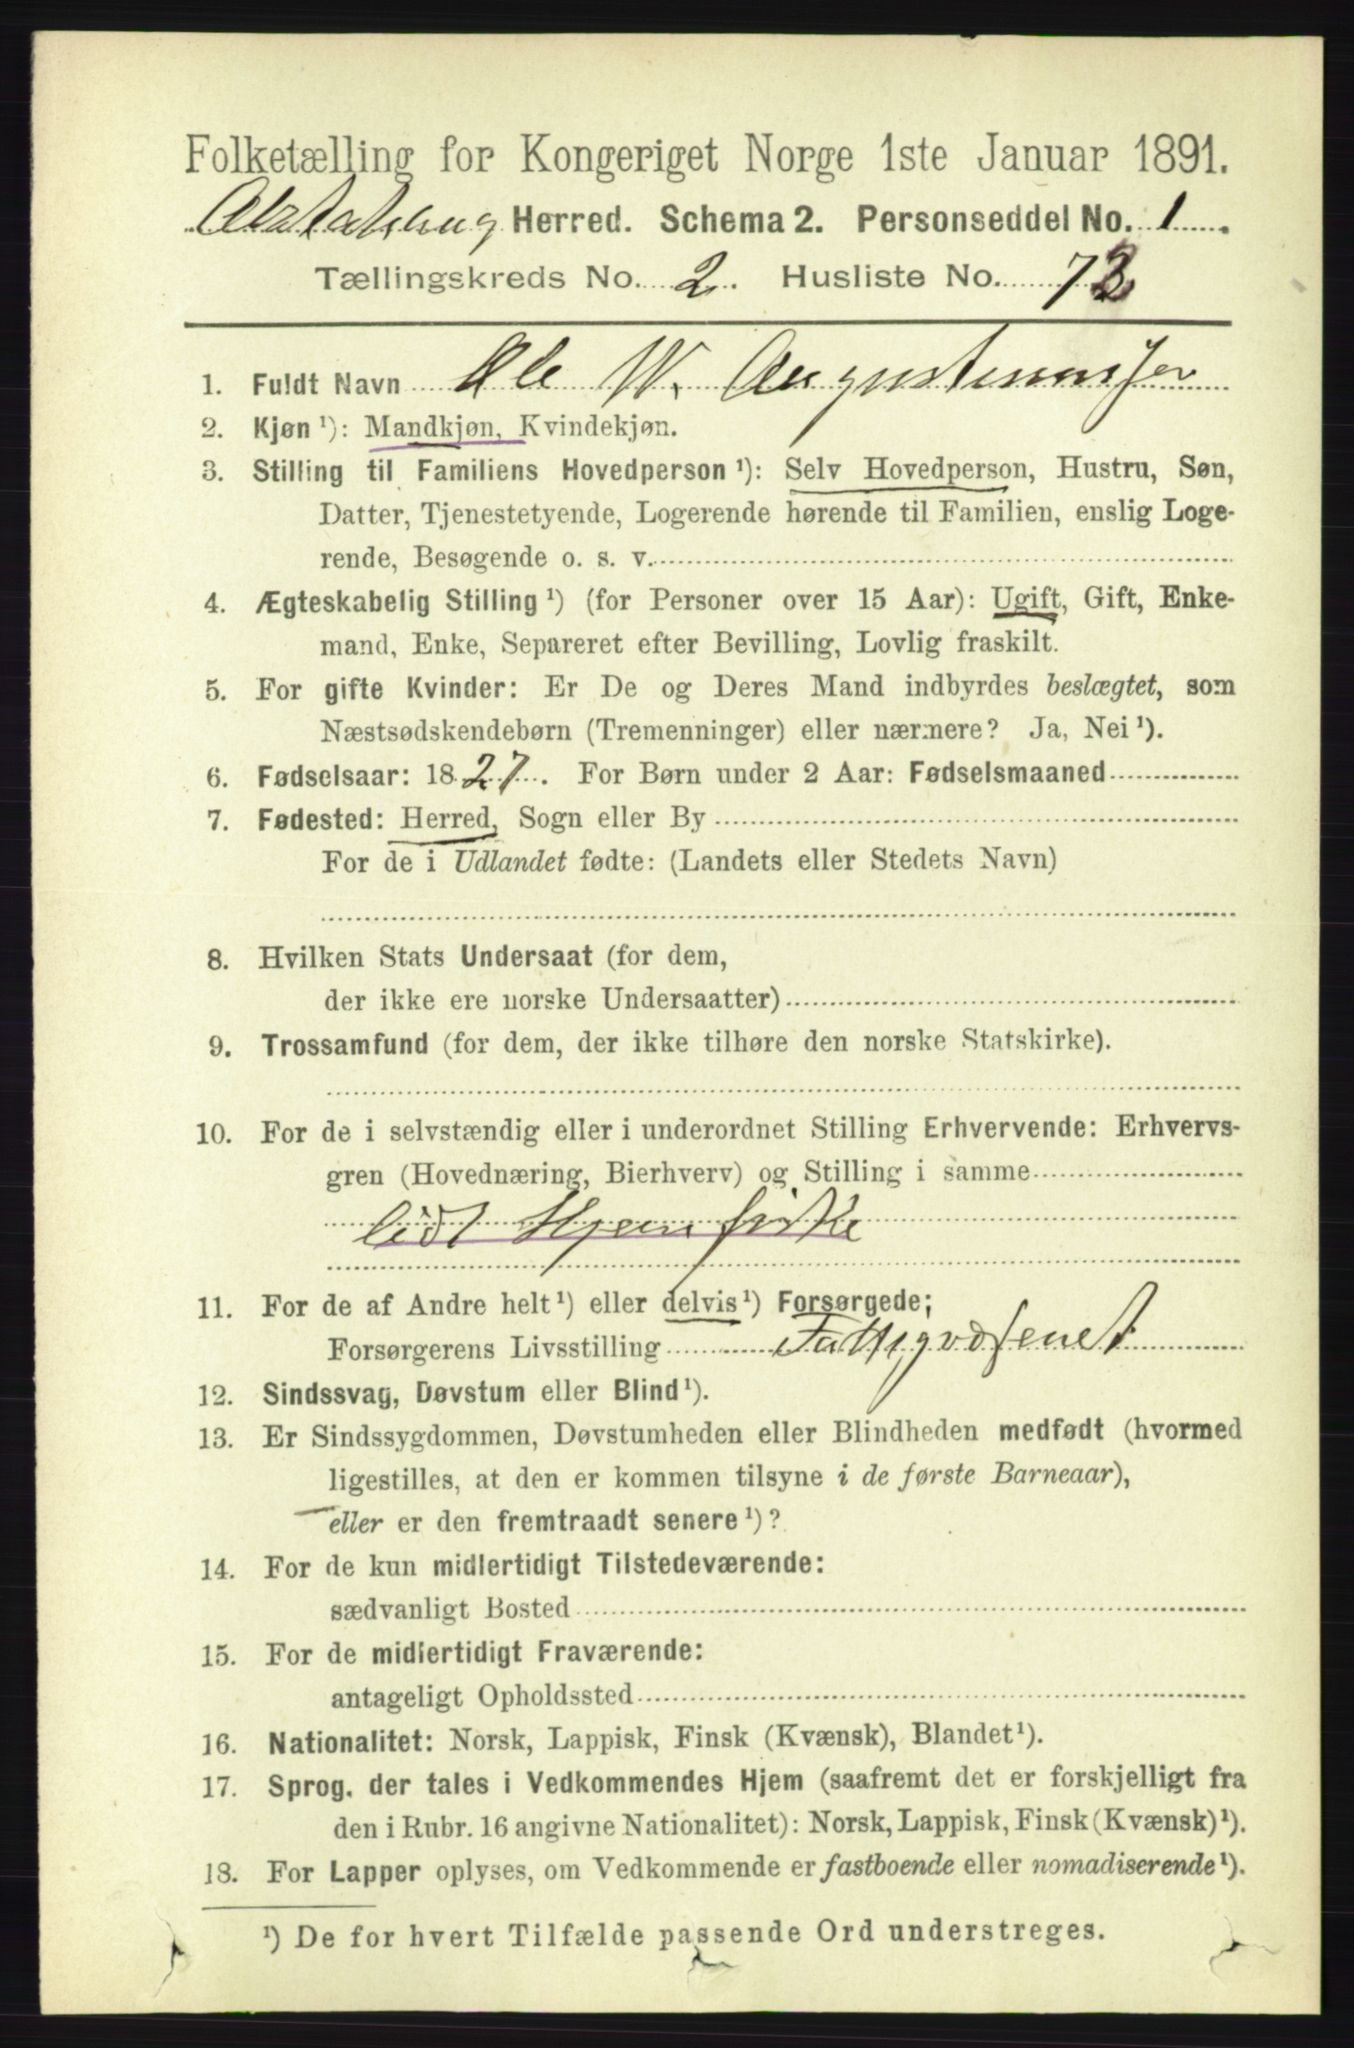 Folketælling for Kongeriget Norge 1ste Januar 1891.
Alstahaug Herred. Schema 2. Personseddel No. 1.
Tællingskreds No. 2. Husliste No. 73
1. Fuldt Navn Ole W. Augustinussen
2. Kjøn ¹): Mandkjøn, Kvindekjøn.
3. Stilling til Familiens Hovedperson ¹): Selv Hovedperson, Hustru, Søn,
Datter, Tjenestetyende, Logerende hørende til Familien, enslig Loge-
rende, Besøgende o. s. v.
4. Ægteskabelig Stilling ¹) (for Personer over 15 Aar): Ugift, Gift, Enke-
mand, Enke, Separeret efter Bevilling, Lovlig fraskilt.
5. For gifte Kvinder: Er De og Deres Mand indbyrdes beslægtet, som
Næstsødskendebørn (Tremenninger) eller nærmere? Ja, Nei ¹).
6. Fødselsaar: 1827. For Børn under 2 Aar: Fødselsmaaned
7. Fødested: Herred, Sogn eller By
For de i Udlandet fødte: (Landets eller Stedets Navn)
8. Hvilken Stats Undersaat (for dem,
der ikke ere norske Undersaatter)
9. Trossamfund (for dem, der ikke tilhøre den norske Statskirke).
10. For de i selvstændig eller i underordnet Stilling Erhvervende: Erhvervs-
gren (Hovednæring, Bierhverv) og Stilling i samme
lidt Hjemfiske
11. For de af Andre helt ¹) eller delvis ¹) Forsørgede;
Forsørgerens Livsstilling Fattigvæsenet
12. Sindssvag, Døvstum eller Blind ¹).
13. Er Sindssygdommen, Døvstumheden eller Blindheden medfødt (hvormed
ligestilles, at den er kommen tilsyne i de første Barneaar),
eller er den fremtraadt senere ¹)?
14. For de kun midlertidigt Tilstedeværende:
sædvanligt Bosted
15. For de midlertidigt Fraværende:
antageligt Opholdssted
16. Nationalitet: Norsk, Lappisk, Finsk (Kvænsk), Blandet ¹).
17. Sprog, der tales i Vedkommendes Hjem (saafremt det er forskjelligt fra
den i Rubr. 16 angivne Nationalitet): Norsk, Lappisk, Finsk (Kvænsk) ¹).
18. For Lapper oplyses, om Vedkommende er fastboende eller nomadiserende ¹).
¹) De for hvert Tilfælde passende Ord understreges.